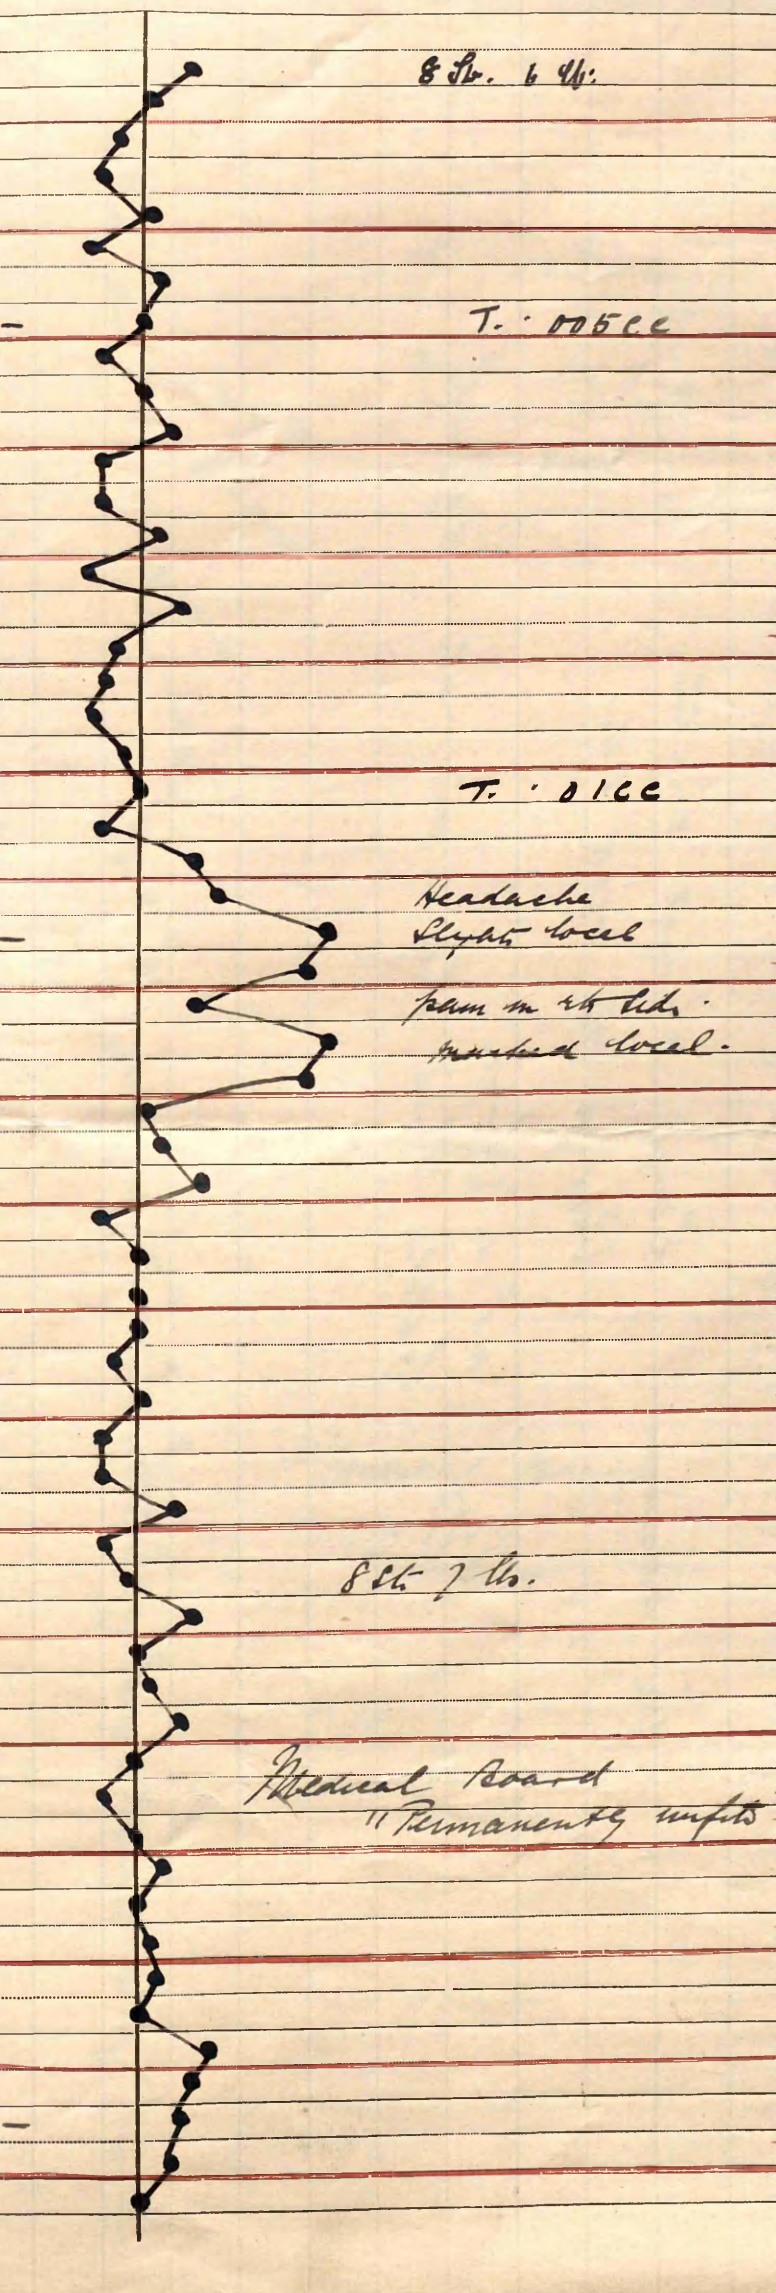 8 St. 6 lb.
T. · 005 cc
T. · 01 cc
Headache
Slight local
pain in rt side.
marked local.
8 St 7 lbs.
Medical Board
"Permanently unfit